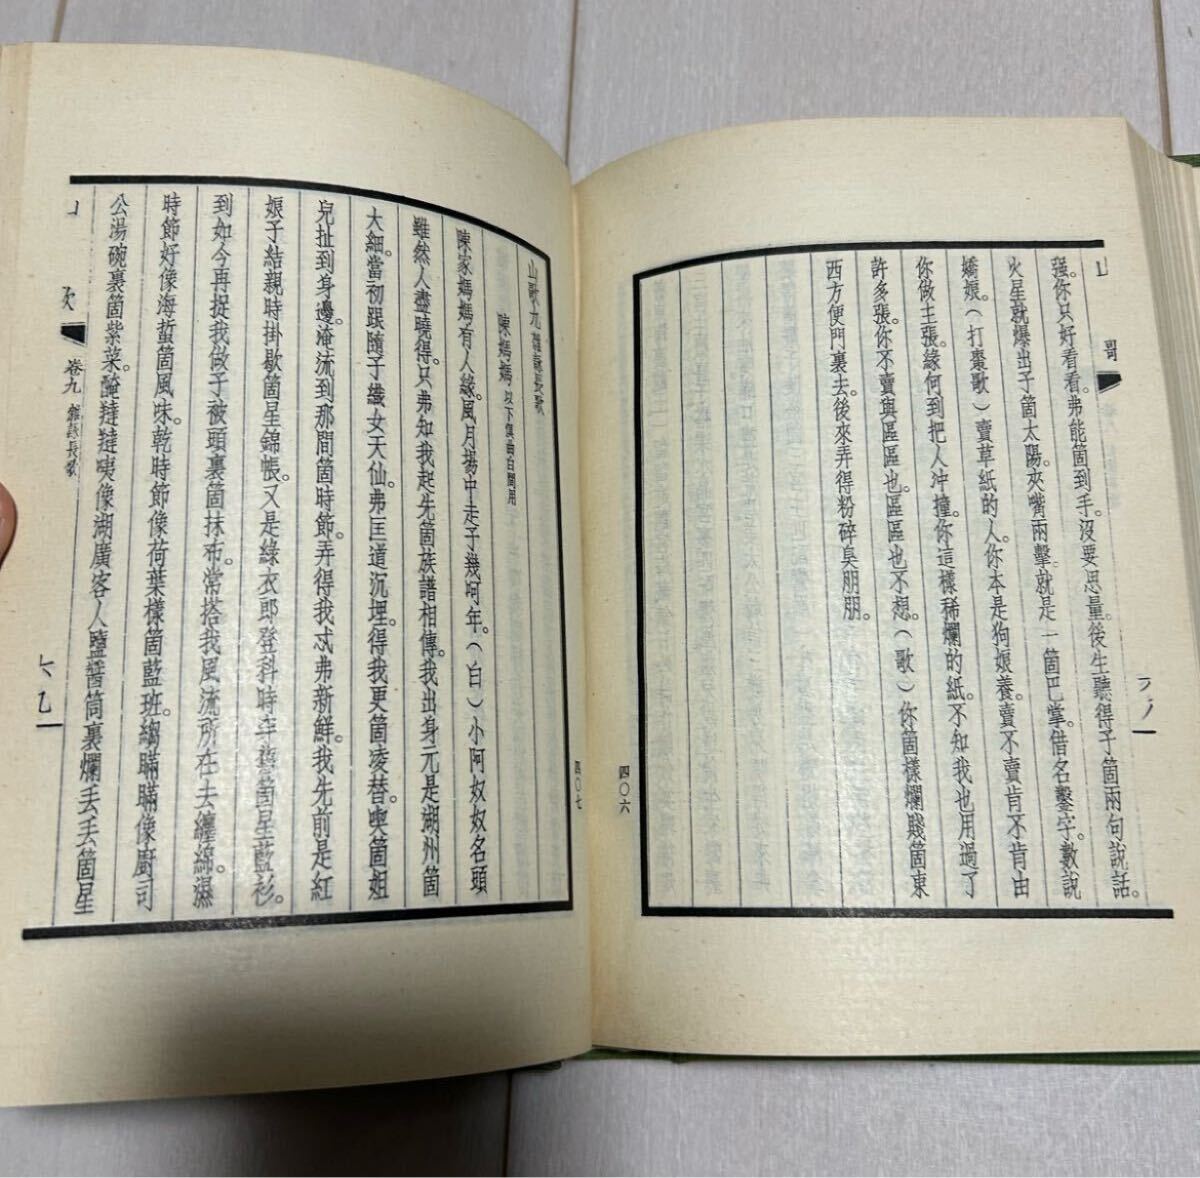 山
强。你只好看看。弗能箇到手。沒要思量。後生聽得子箇兩句說話。
火星就爆出子箇太陽。夾嘴兩擊就是一箇巴掌。借名鑿字。數說
嬌娘。(打棗歌)賣草紙的人。你本是狗娘養。賣不賣肯不肯由
你做主張。緣何到把人沖撞。你這樣稀爛的紙。不知我也用過了
許多張。你不賣與區區也。區區也不想。(歌)你箇樣爛賤箇東
西方便門裏去。後來弄得粉碎臭朋朋。
四〇六
山歌九 雜詠長歌
陳媽媽 以下俱曲白間用
陳家媽媽有人緣。風月場中走子幾呵年。(白)小阿奴奴名頭
雖然人盡曉得。只弗知我起先箇族譜相傳。我出身元是湖州箇
大細。當初跟隨子織女天仙。弗匡道沉埋。得我更箇凌替。喫箇姐
兒扯到身邊。淹流到那間箇時節。弄得我忒弗新鮮。我先前是紅
娘子結親時掛歇箇星錦帳。又是綠衣郎登科時穿舊箇星藍衫。
到如今再捉我做子被頭裏箇抹布。常搭我風流所在去纏綿。濕
時節好像海蜇箇風味。乾時節像荷葉樣箇藍班。縐瞞瞞像廚司
公湯碗裏箇紫菜。醃撻撻咦像湖廣客人鹽醬筒裏爛丟丟箇星
卷九 雜詠長歌
四〇七